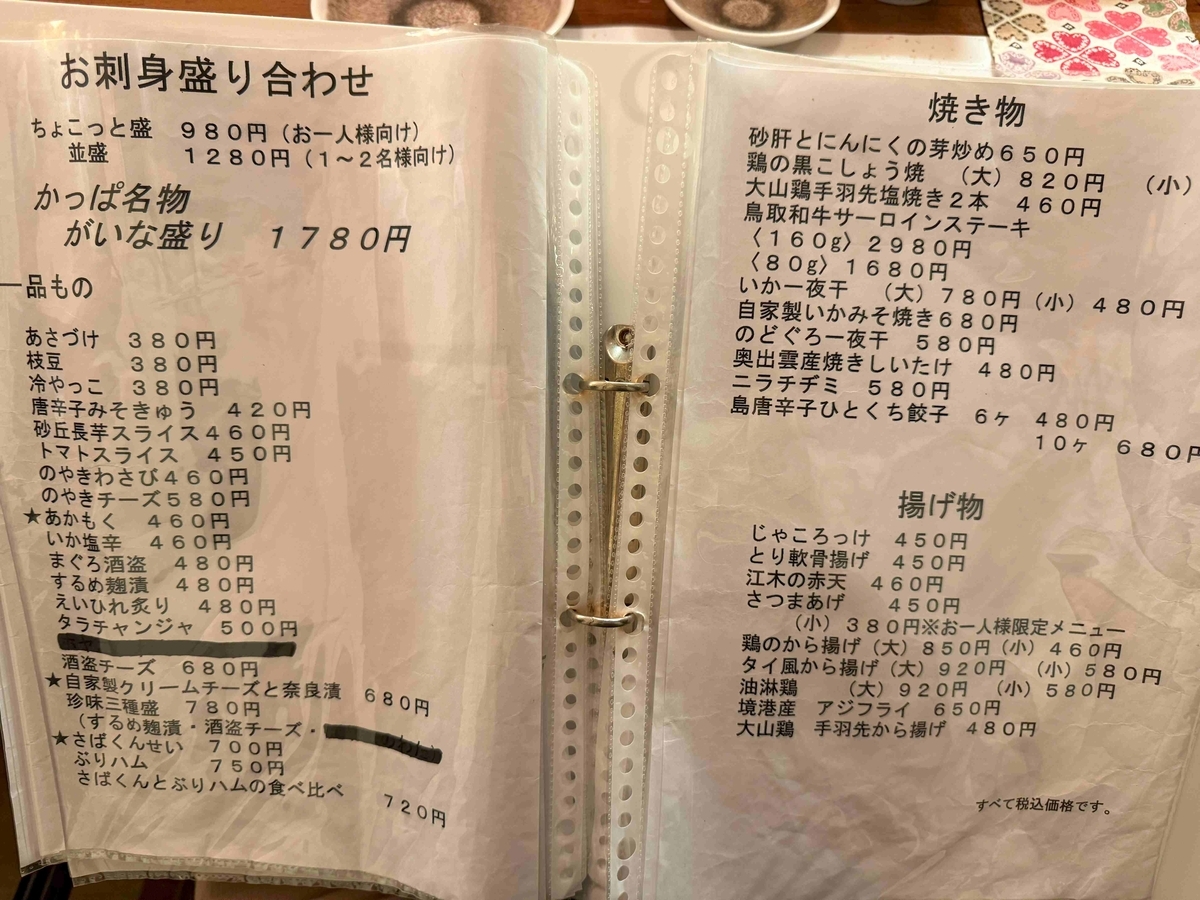 お刺身盛り合わせ
ちょこっと盛　９８０円（お一人様向け）
並盛　１２８０円（１～２名様向け）
かっぱ名物
がいな盛り　１７８０円
一品もの
あさづけ　３８０円
枝豆　３８０円
冷やっこ　３８０円
唐辛子みそきゅう　４２０円
砂丘長芋スライス４６０円
トマトスライス　４５０円
のやきわさび４６０円
のやきチーズ５８０円
★あかもく　４６０円
いか塩辛　４６０円
まぐろ酒盗　４８０円
するめ麹漬　４８０円
えいひれ炙り　４８０円
タラチャンジャ　５００円
酒盗チーズ　６８０円
★自家製クリームチーズと奈良漬　６８０円
珍味三種盛　７８０円
（するめ麹漬・酒盗チーズ・
★さばくんせい　７００円
ぶりハム　７５０円
さばくんとぶりハムの食べ比べ
７２０円
焼き物
砂肝とにんにくの芽炒め６５０円
鶏の黒こしょう焼　（大）８２０円　（小）
大山鶏手羽先塩焼き２本　４６０円
鳥取和牛サーロインステーキ
〈１６０g〉２９８０円
〈８０g〉１６８０円
いか一夜干　（大）７８０円（小）４８０円
自家製いかみそ焼き６８０円
のどぐろ一夜干　５８０円
奥出雲産焼きしいたけ　４８０円
ニラチヂミ　５８０円
島唐辛子ひとくち餃子　６ヶ　４８０円
１０ヶ　６８０円
揚げ物
じゃころっけ　４５０円
とり軟骨揚げ　４５０円
江木の赤天　４６０円
さつまあげ　４５０円
（小）３８０円※お一人様限定メニュー
鶏のから揚げ（大）８５０円（小）４６０円
タイ風から揚げ（大）９２０円　（小）５８０円
油淋鶏　（大）９２０円　（小）５８０円
境港産　アジフライ　６５０円
大山鶏　手羽先から揚げ　４８０円
すべて税込価格です。